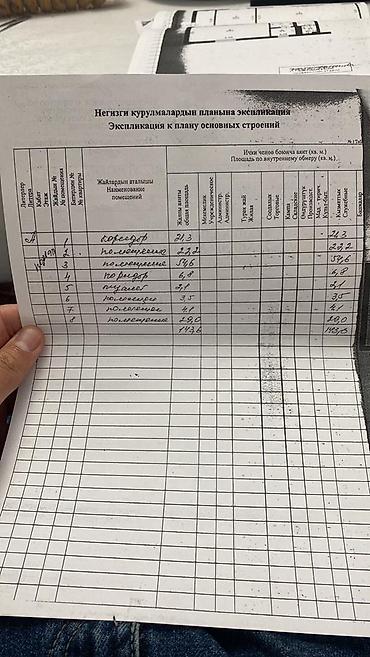 Негизги курулмалардын планына экспликация
Экспликация к плану основных строений
Литерлер
Литера
Кабат
Этаж
Жайдын №
№ помещения
Батирдин №
№ квартиры
Жайлардын аталышы
Наименование
помещений
Ички ченөө боюнча аянт (кв. м.)
Площадь по внутреннему обмеру (кв. м.)
Жалпы аянты
общая площадь
Мекемелик
Учрежденческие
Администр.
Администр.
Турак жай
Жилая
Соодалык
Торговые
Кампа
Складские
Өндүрүштүк
Производст.
Мад.-тирич.
Культ-быт.
Кызматтык
Служебные
Башкалар
А 1 коридор 21,3 21,3
2 помещение 22,2 22,2
3 помещение 54,6 54,6
4 коридор 6,8 6,8
5 туалет 2,1 2,1
6 помещение 3,5 3,5
7 помещение 4,1 4,1
8 помещение 29,0 29,0
143,6 143,6